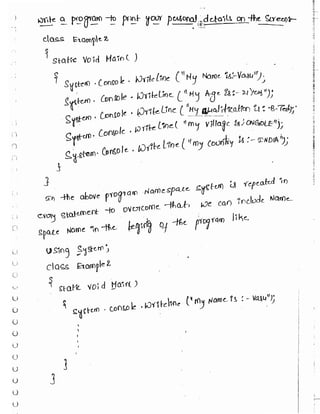 write a program to print your personal details on the screen:-
class Example 2
{
static void Main( )
{
System . Console . WriteLine ("My Name is:-Vasu");
System . Console . WriteLine ("My Age is:- 21 year");
System . Console . WriteLine ("My qualification is :-B-Tech";
System . Console . WriteLine ("my village is : ONGOLE");
System . Console . WriteLine ("my country is :- INDIA");
}
}
In the above program Namespace system is repeated in
every statement to overcome that, we can include Name-
space Name in the begining of the program like.
using System;
class Example 2
{
static void Main( )
{
System . console . Writeline ("my Name is :- Vasu");
}
}